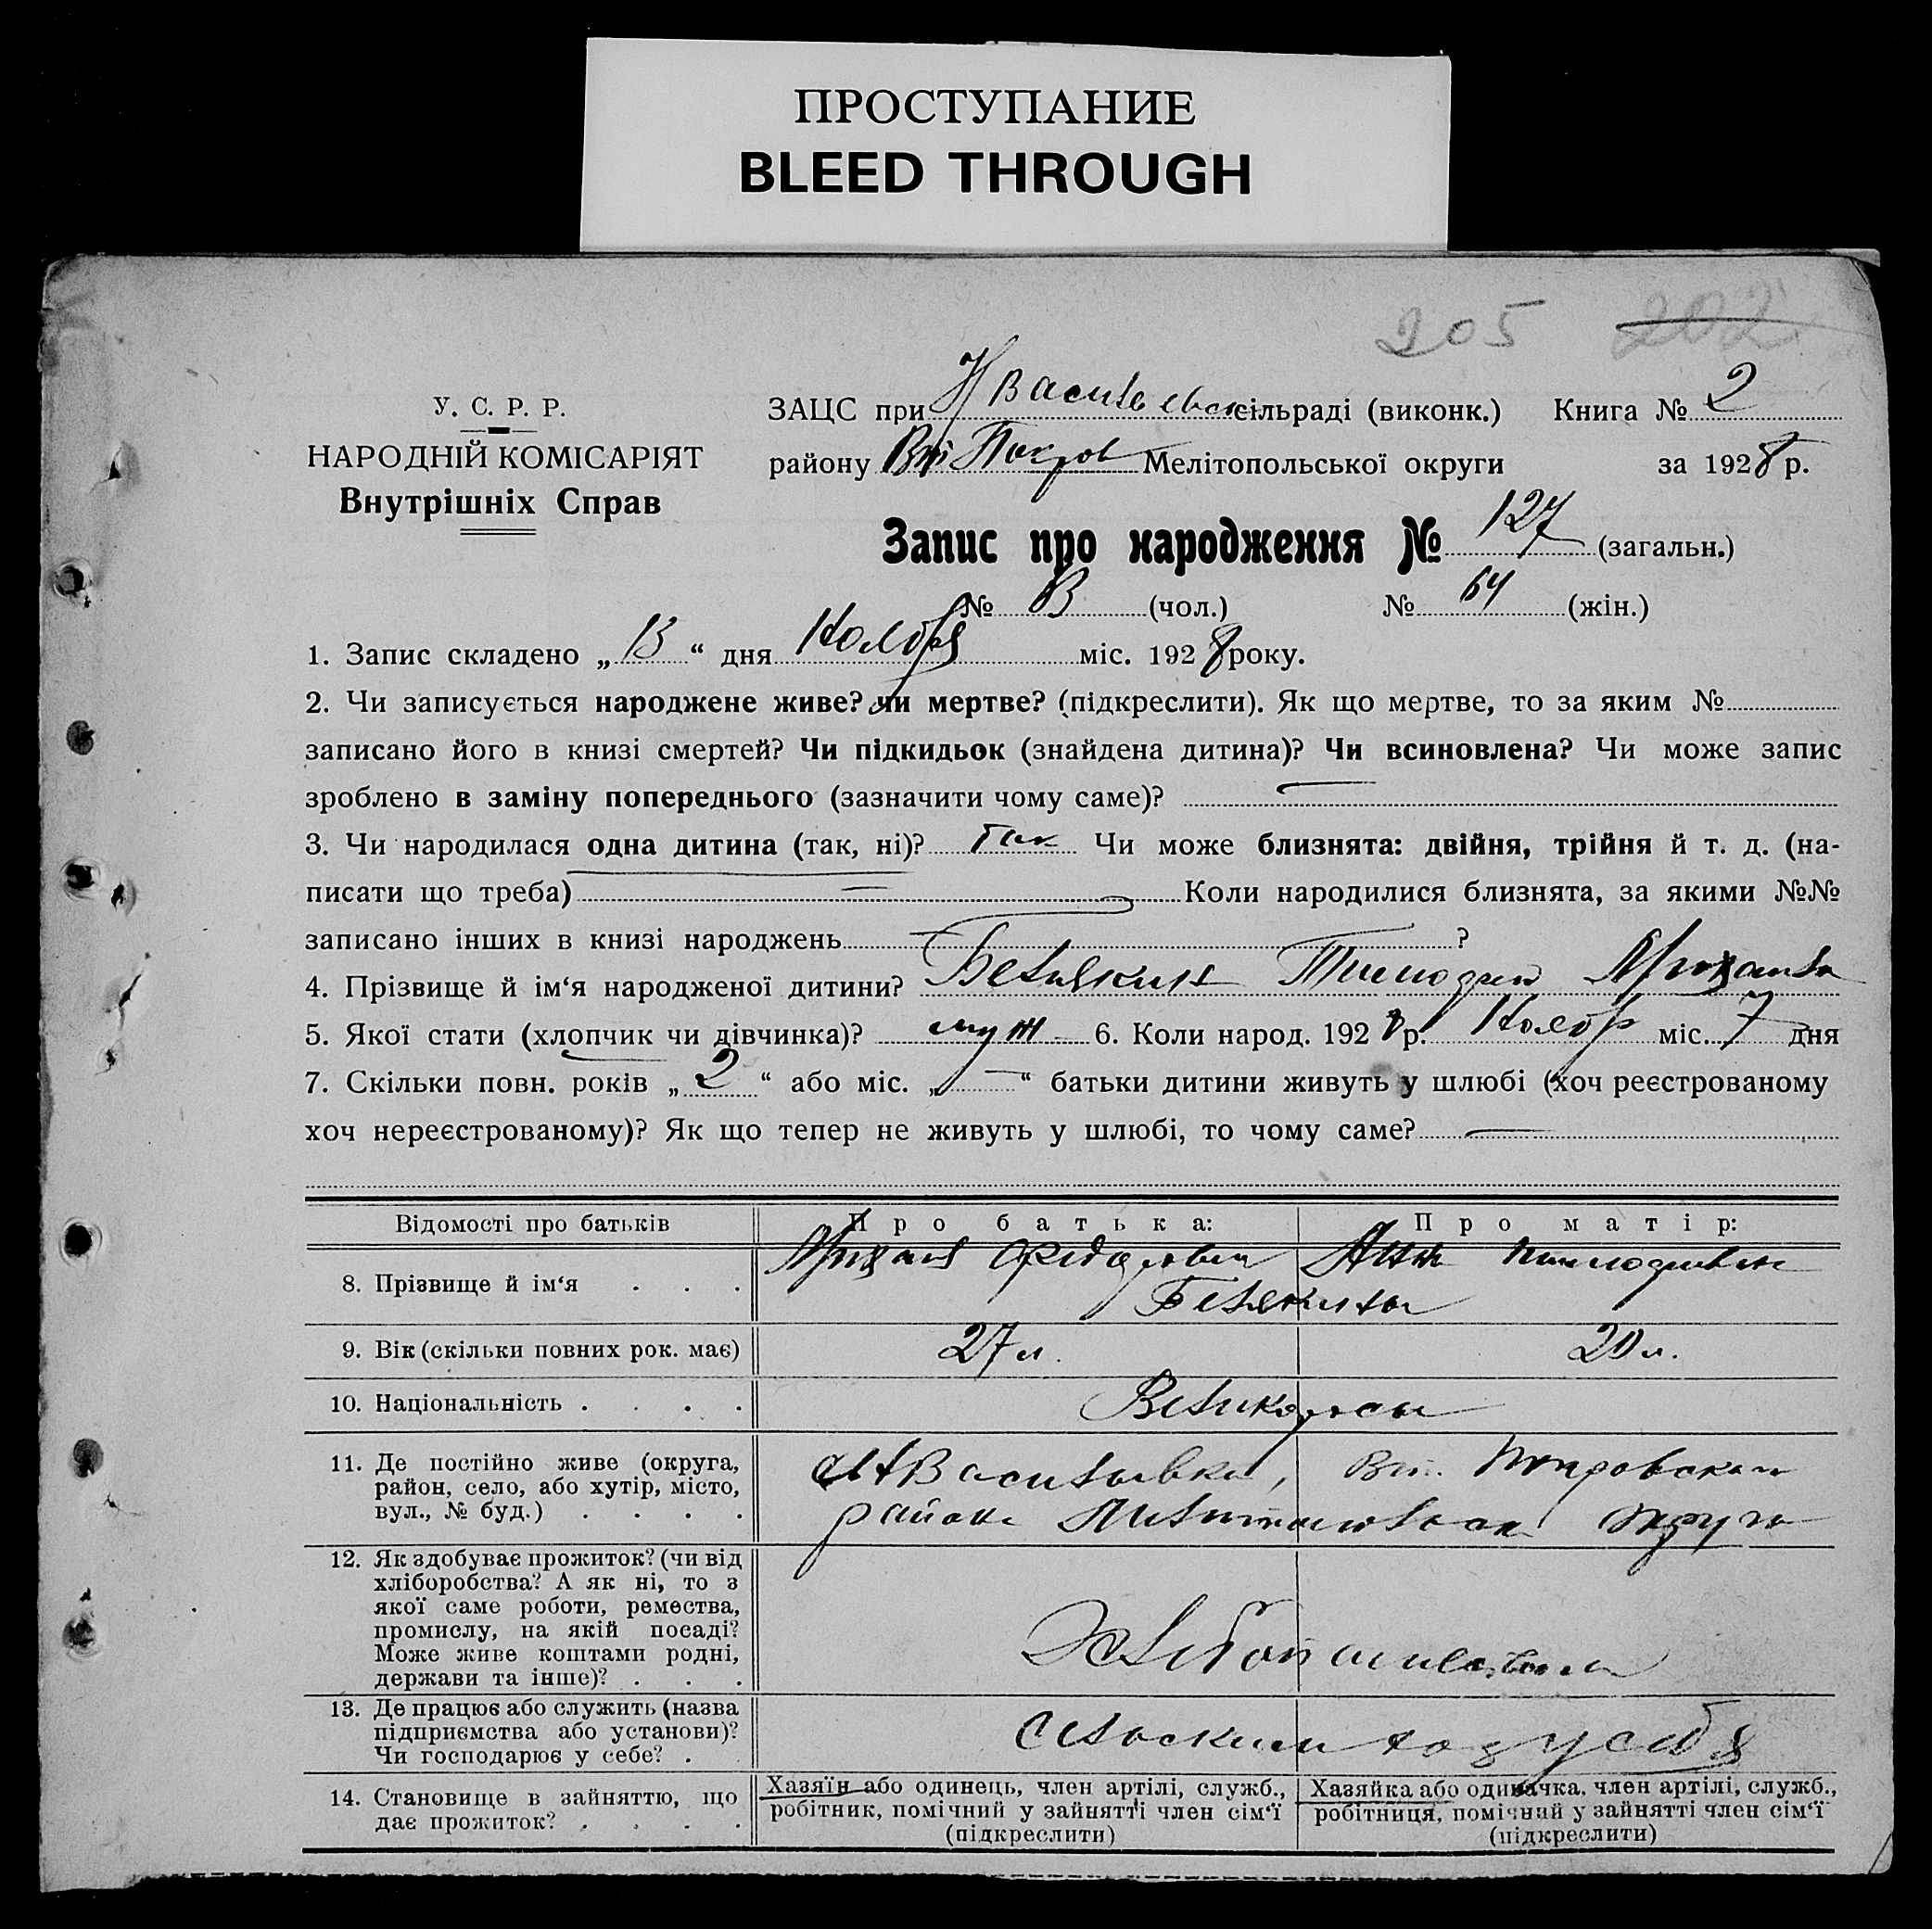 ПРОСТУПАНИЕ
BLEED THROUGH
205 202
У. С. Р. Р.
НАРОДНІЙ КОМІСАРІЯТ
Внутрішніх Справ
ЗАЦС при сільраді (виконк.) Книга № 2
району Мелітопольської округи за 1928 р.
Запис про народження № 127 (загальн.)
№ (чол.) № 64 (жін.)
1. Запис складено „13“ дня Ноября міс. 1928 року.
2. Чи записується народжене живе? чи мертве? (підкреслити). Як що мертве, то за яким №
записано його в книзі смертей? Чи підкидьок (знайдена дитина)? Чи всиновлена? Чи може запис
зроблено в заміну попереднього (зазначити чому саме)? —
3. Чи народилася одна дитина (так, ні)? так Чи може близнята: двійня, трійня й т. д. (на-
писати що треба) Коли народилися близнята, за якими №№
записано інших в книзі народжень ?
4. Прізвище й ім‘я народженої дитини?
5. Якої стати (хлопчик чи дівчинка)? муж 6. Коли народ. 1928 р. Ноябр міс. 7 дня
7. Скільки повн. років „2“ або міс. „—“ батьки дитини живуть у шлюбі (хоч реєстрованому
хоч нереєстрованому)? Як що тепер не живуть у шлюбі, то чому саме? —
Відомості про батьків Про батька: Про матір:
8. Прізвище й ім‘я . . .
9. Вік (скільки повних рок. має) 27 л. 20 л.
10. Національність . . . . Великоросы
11. Де постійно живе (округа,
район, село, або хутір, місто,
вул., № буд.) . . . .
Васильевка, Покровского
района Мелитопольской округи
12. Як здобуває прожиток? (чи від
хліборобства? А як ні, то з
якої саме роботи, ремества,
промислу, на якій посаді?
Може живе коштами родні,
держави та інше)? . . .
Хлебопашеством
13. Де працює або служить (назва
підприємства або установи)?
Чи господарює у себе? .
сельским хоз у себя
14. Становище в зайняттю, що
дає прожиток? . . . .
Хазяїн або одинець, член артілі, служб.,
робітник, помічний у зайнятті член сім‘ї
(підкреслити)
Хазяйка або одиначка, член артілі, служб.,
робітниця, помічний у зайнятті член сім‘ї
(підкреслити)